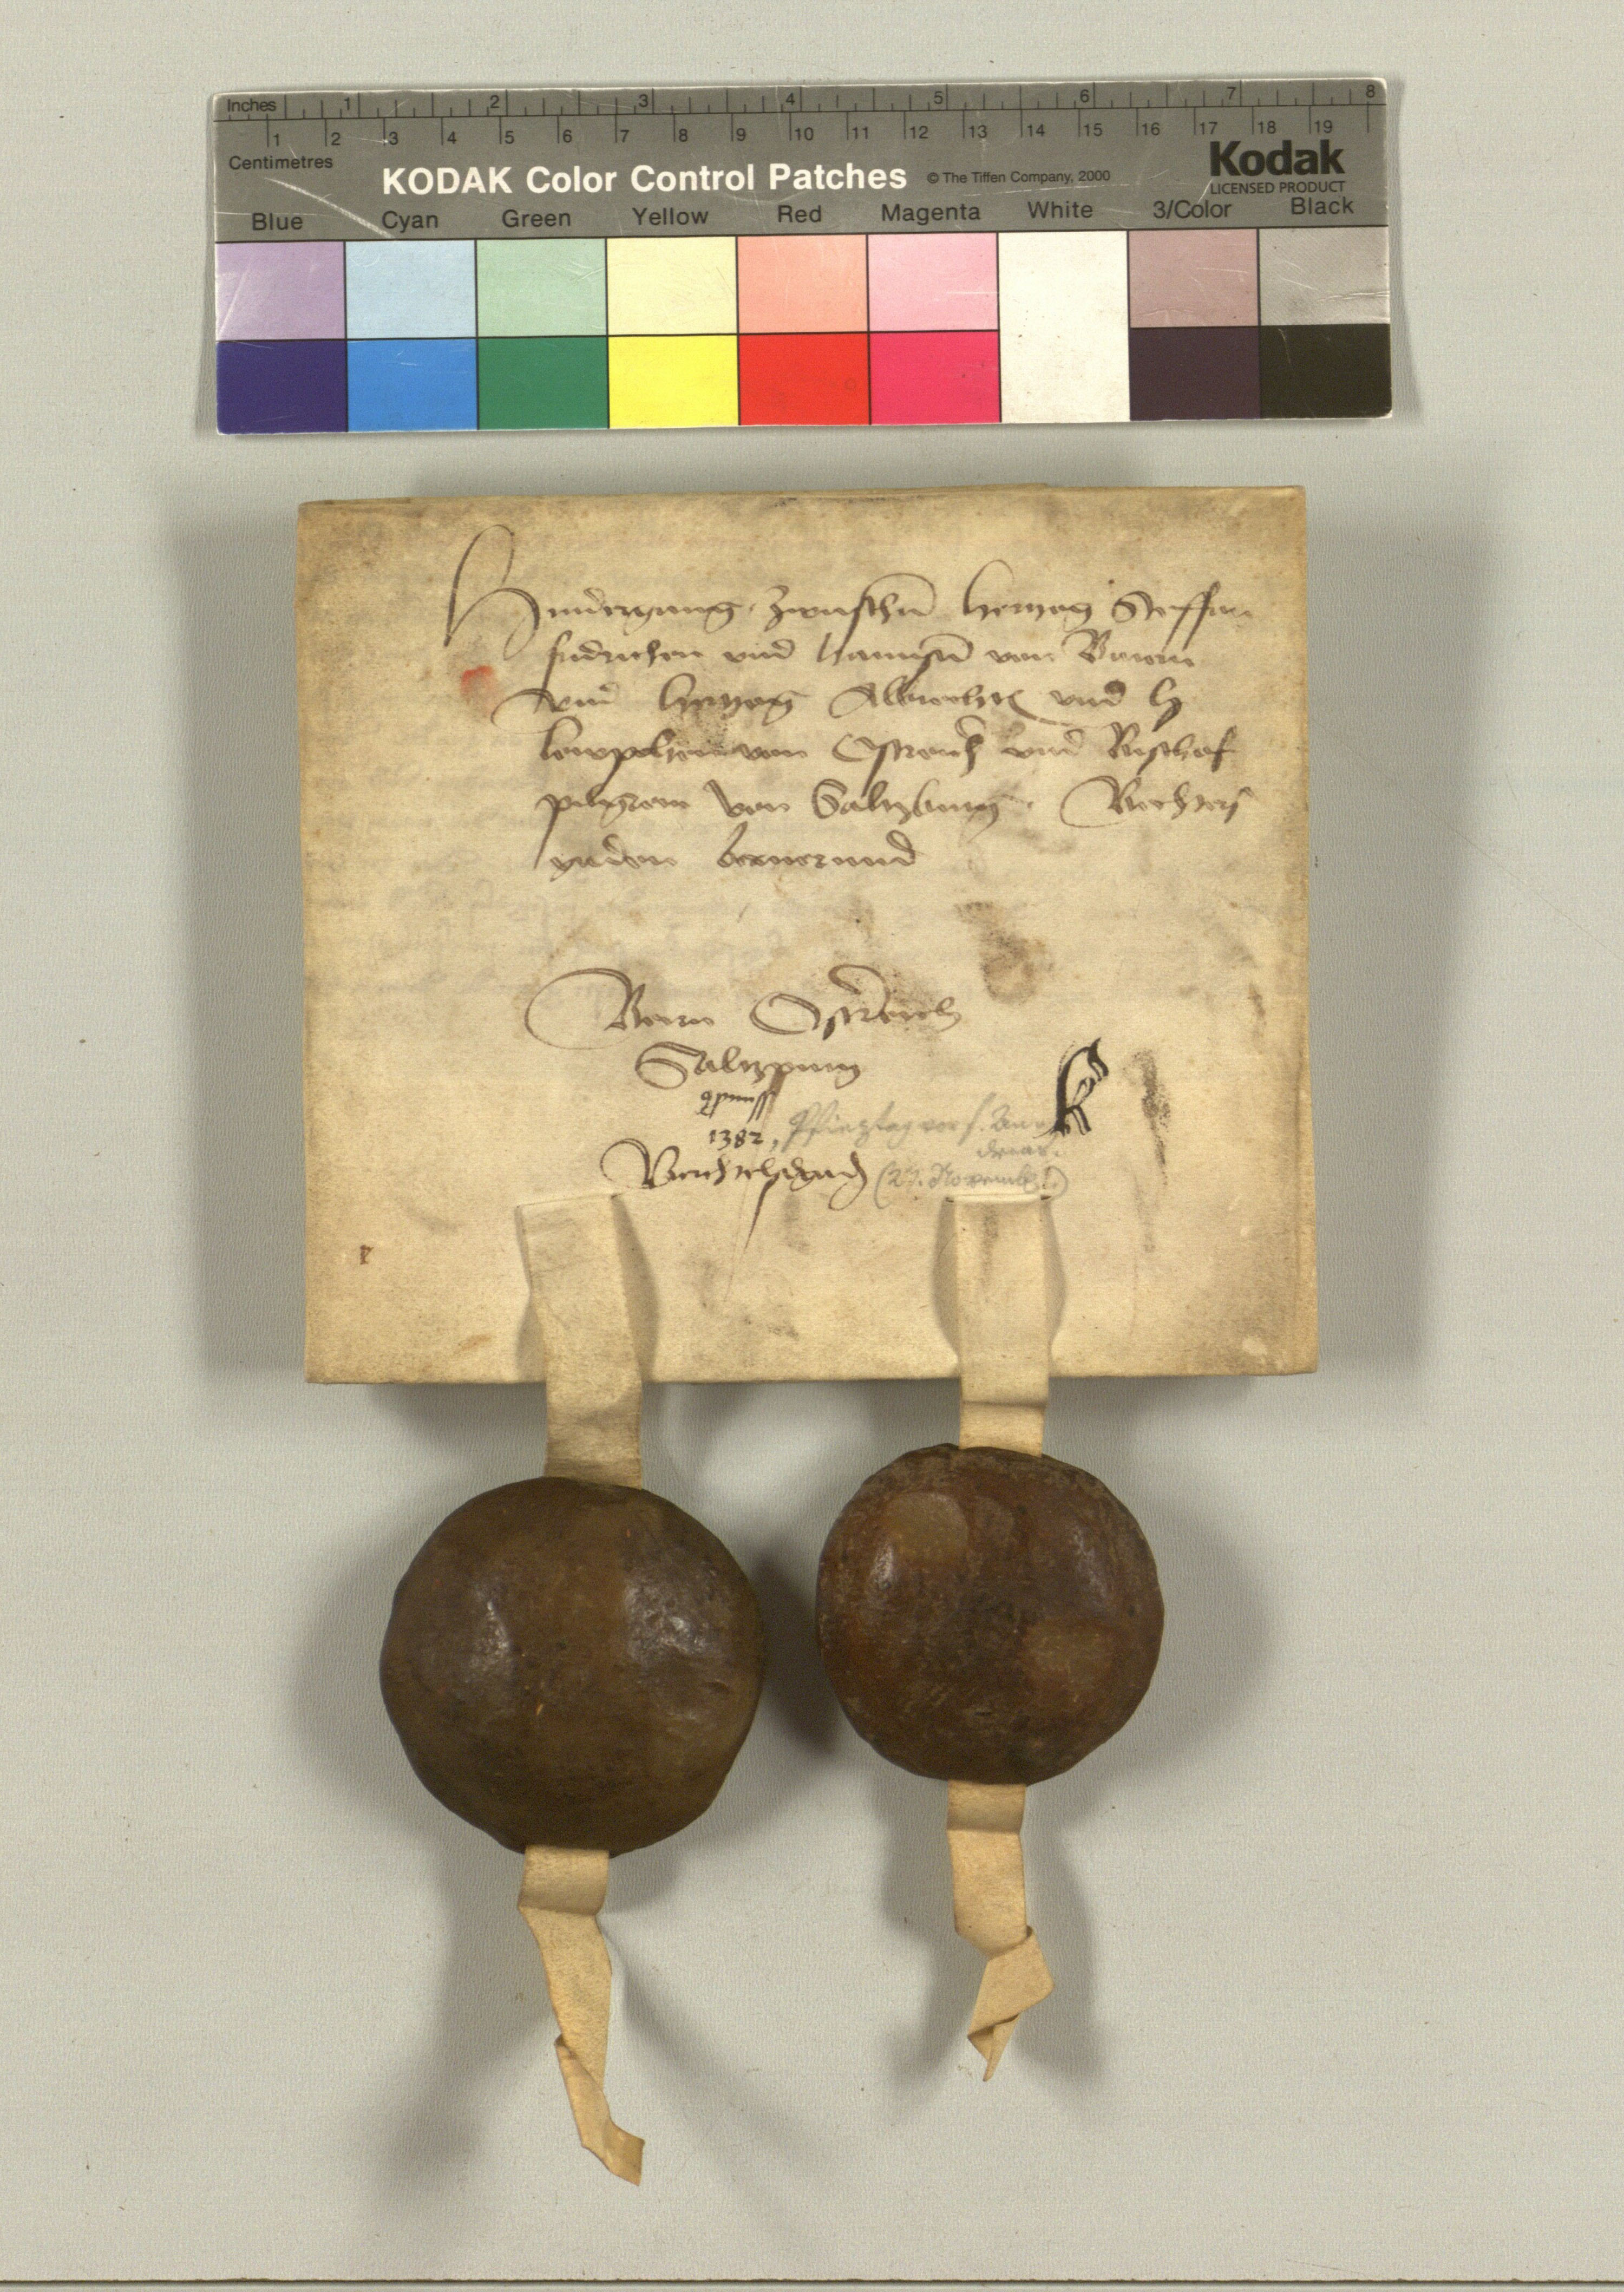 Inches 1 2 3 4 5 6 7 8
1 2 3 4 5 6 7 8 9 10 11 12 13 14 15 16 17 18 19
Centimetres
KODAK Color Control Patches © The Tiffen Company, 2000 Kodak
LICENSED PRODUCT
Blue Cyan Green Yellow Red Magenta White 3/Color Black
Hindergang zwuschn hertzog Steffan
fridrichen vnd hannsn von Beirn
vnd hertzog Albrechten vnd h
lewpolten von Osterreich vnd Bischof
pilgrem von Saltzburg
Beirn Osterreich
Saltzpurg
1382, Pfinztag vor s. An
dreas.
(27. Novemb.)
k